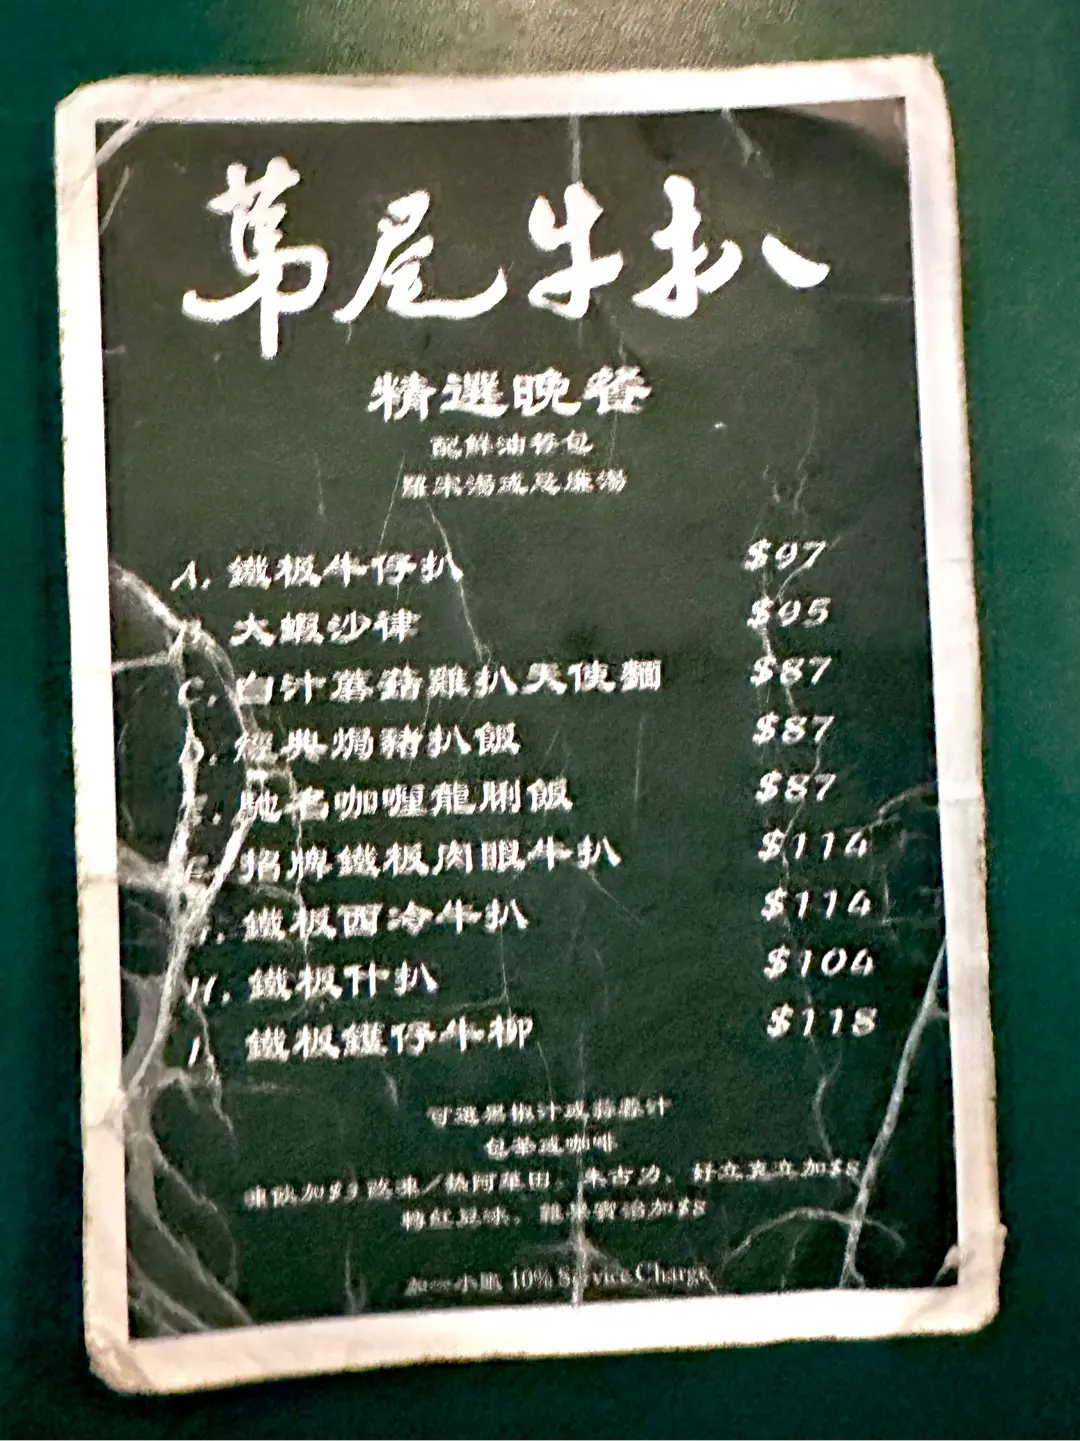 尾牛扒
精選晚餐
配鮮油餐包
羅宋湯或忌廉湯
A. 鐵板牛仔扒 $97
大蝦沙律 $95
C. 白汁蘑菇雞扒天使麵 $87
D. 經典焗豬扒飯 $87
E. 馳名咖喱龍脷飯 $87
招牌鐵板肉眼牛扒 $114
鐵板西冷牛扒 $114
H. 鐵板什扒 $104
I. 鐵板鑊仔牛柳 $118
可選黑椒汁或蒜蓉汁
包茶或咖啡
凍飲加$3 /熱阿華田、朱古力、好立克加$8
紅豆冰、加$8
加一小賬 10% Service Charge